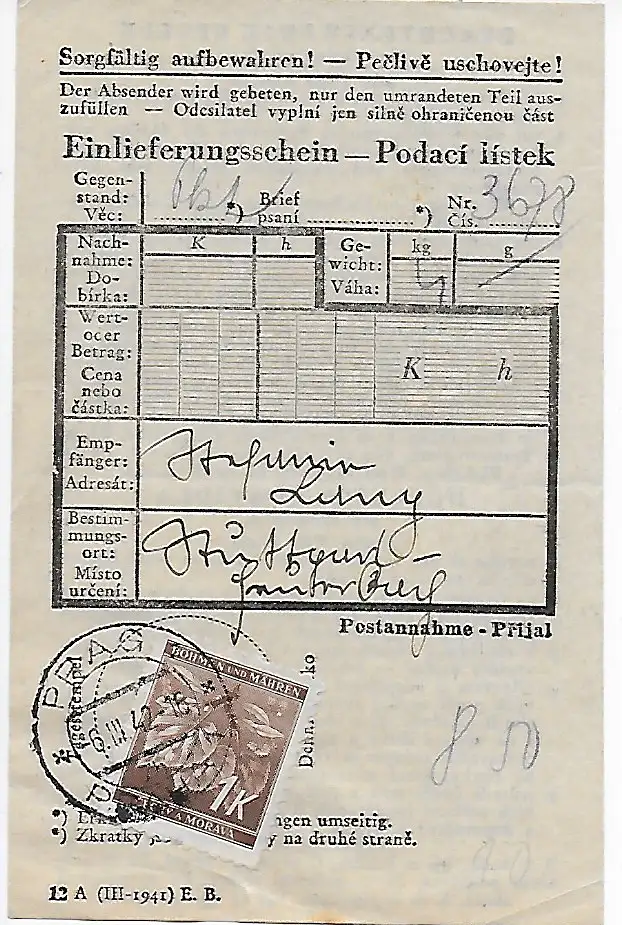 Sorgfältig aufbewahren! — Pečlivě uschovejte!
Der Absender wird gebeten, nur den umrandeten Teil aus-
zufüllen — Odesilatel vyplní jen silně ohraničenou část
Einlieferungsschein — Podací lístek
Gegen-
stand:
Věc:
*) Brief
psaní
*) Nr.
Čís.
3678
Nach-
nahme:
Do-
bírka:
K h
Ge-
wicht:
Váha:
kg g
Wert-
oder
Betrag:
Cena
nebo
částka:
K h
Emp-
fänger:
Adresát:
Bestim-
mungs-
ort:
Místo
určení:
Stuttgart-
Postannahme - Příjal
PRAG
Tagesstempel
6. III. 4
BÖHMEN UND MÄHREN
1K
ČECHY A MORAVA
8.50
*)
ngen umseitig.
*) Zkratky
y na druhé straně.
12 A (III-1941) E. B.